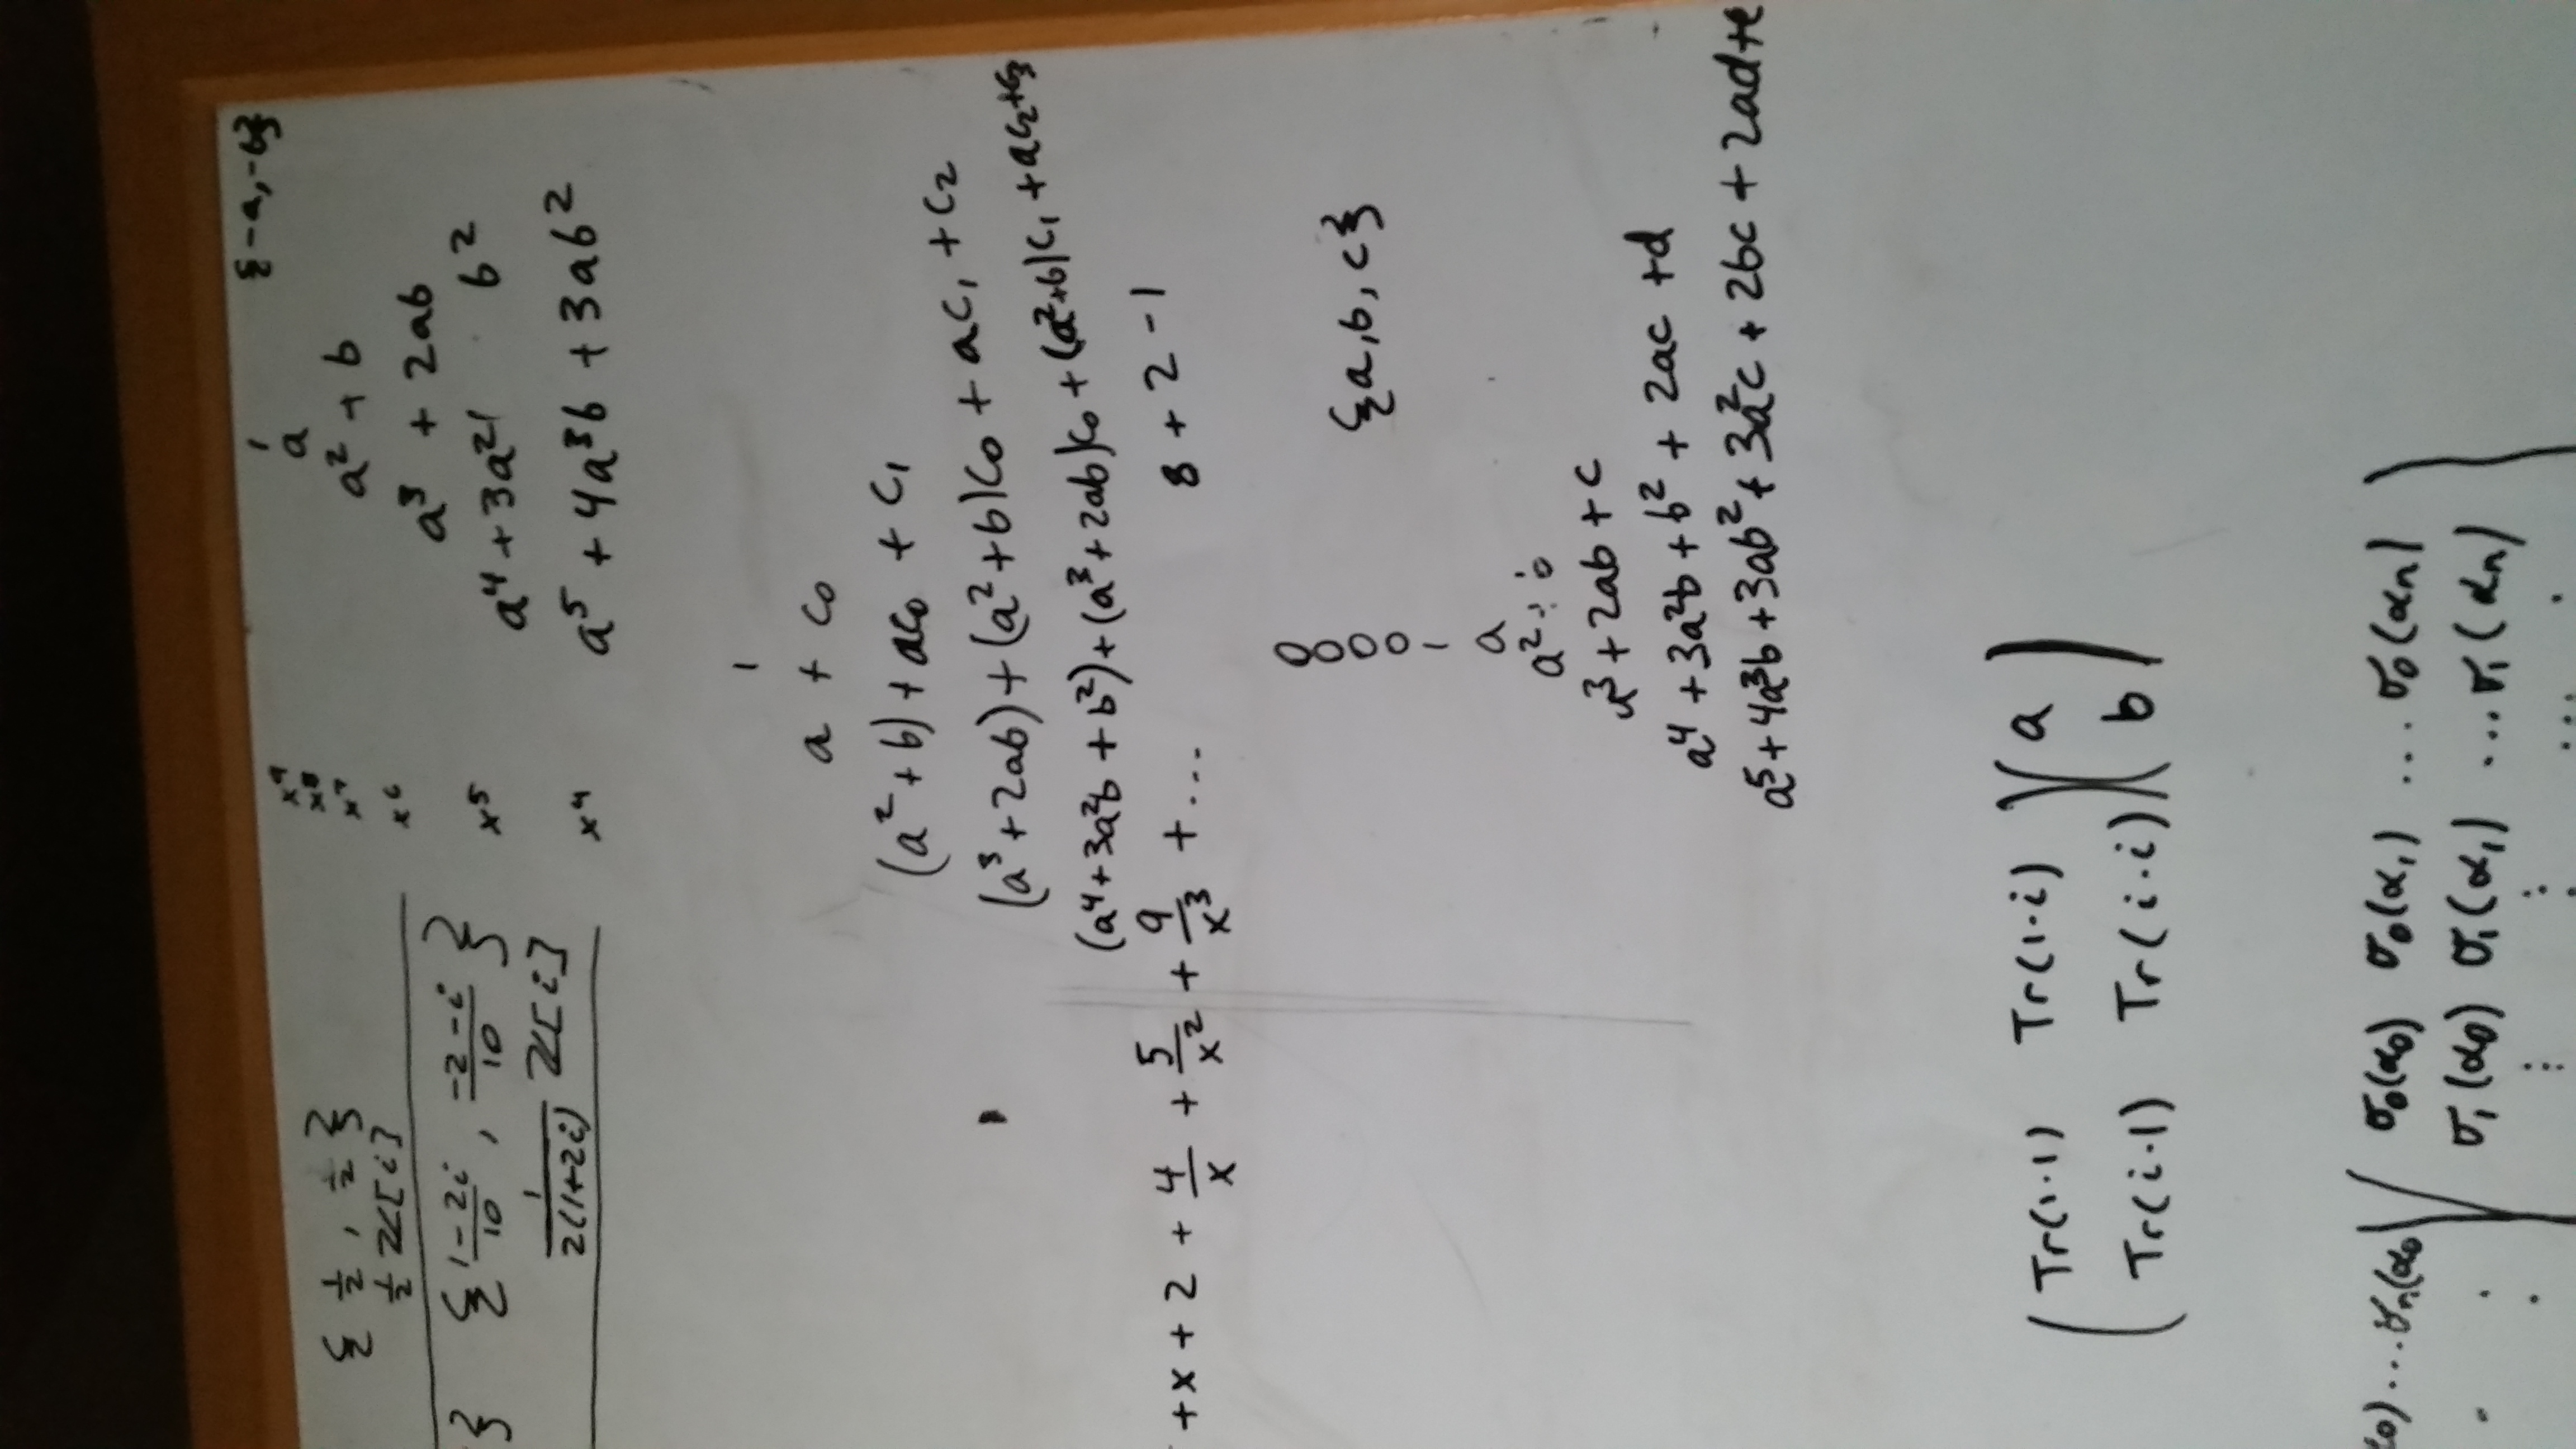 {-a, -b}
{ 1/2 , 1/2 }
1/2 ℤ[i]
} { (1-2i)/10 , (-2-i)/10 }
1/(2(1+2i)) ℤ[i]
x⁹
x⁸
x⁷
x⁶
x⁵
x⁴
1
a
a² + b
a³ + 2ab
a⁴ + 3a² b²
a⁵ + 4a³b + 3ab²
1
a + c₀
(a² + b) + ac₀ + c₁
(a³ + 2ab) + (a² + b)c₀ + ac₁ + c₂
(a⁴ + 3a²b + b²) + (a³ + 2ab)c₀ + (a² + b)c₁ + ac₂ + c₃
+ x + 2 + 4/x + 5/x² + 9/x³ + ...
8 + 2 - 1
0
0
0
0
1
a
{a, b, c}
a² +
³ + 2ab + c
a⁴ + 3a²b + b² + 2ac + d
a⁵ + 4a³b + 3ab² + 3a²c + 2bc + 2ad + e
( Tr(1·1) Tr(1·i) ) ( a )
( Tr(i·1) Tr(i·i) ) ( b )
) ... σₙ(α₀ ) ( σ₀(α₀) σ₀(α₁) ... σ₀(αₙ) )
σ₁(α₀) σ₁(α₁) ... σ₁(αₙ)